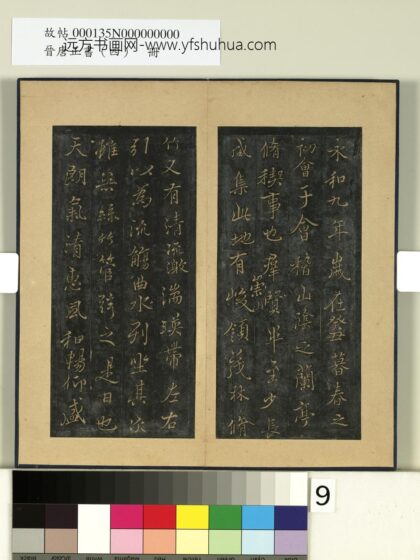 故帖 000135N000000000
远方书画网- www.yfshuhua.com
晉唐正書（四） 冊
永和九年歲在癸暮春之
初會于會稽山陰之蘭亭
脩禊事也群賢畢至少長
咸集此地有峻領茂林脩
崇
竹又有清流激湍暎帶左右
引以為流觴曲水列坐其次
雖無絲竹管弦之是日也
天朗氣清惠風和暢仰
9